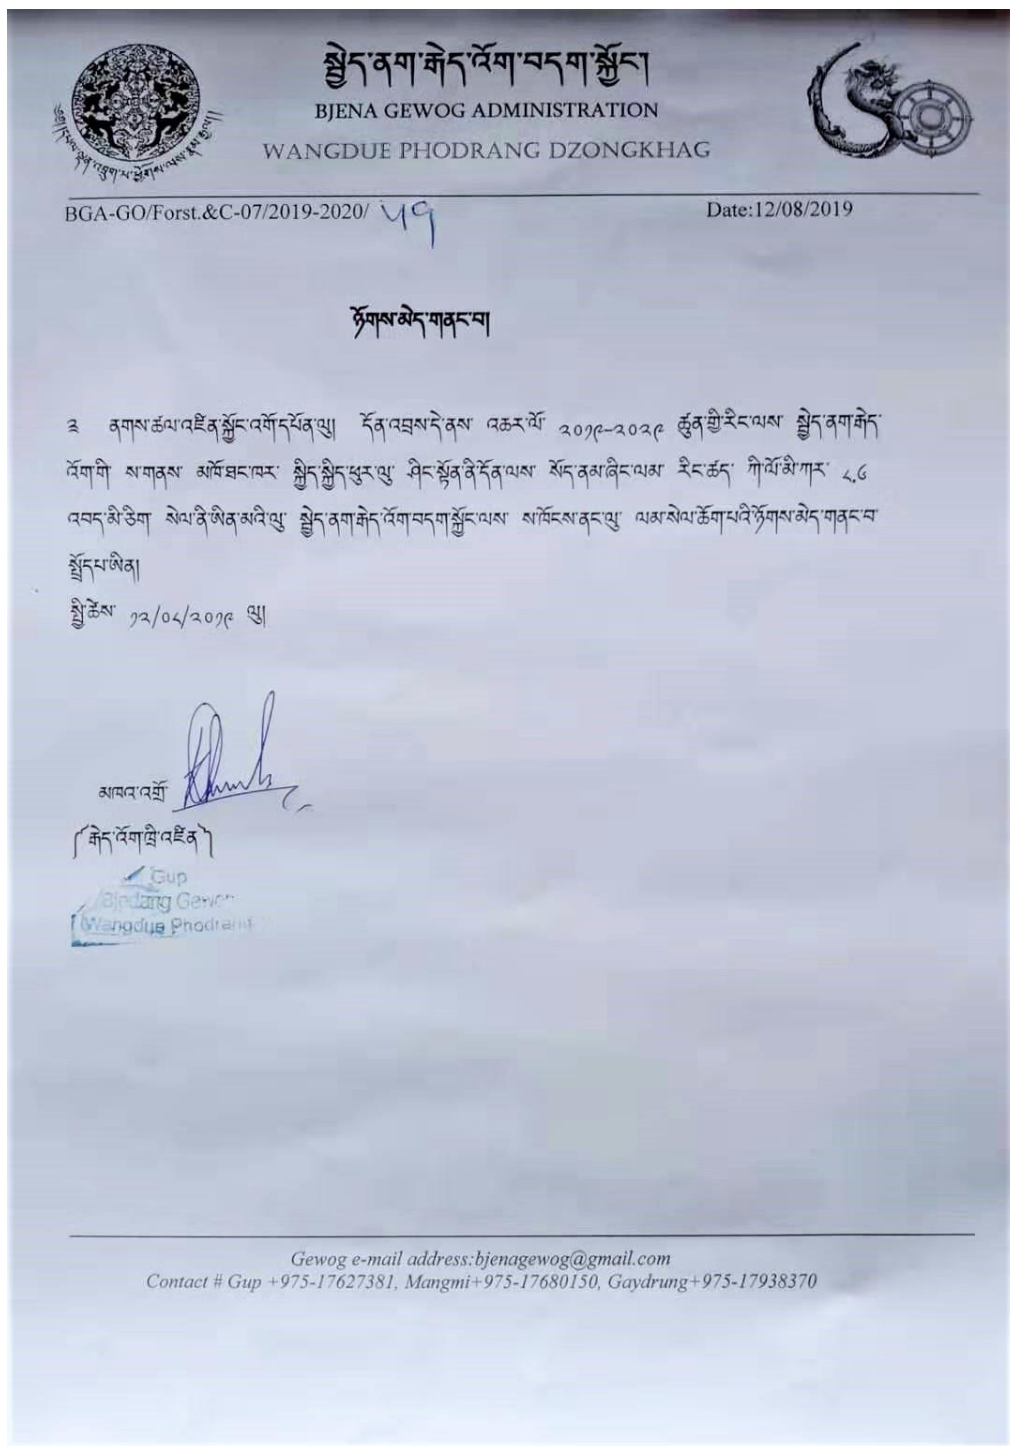 སྦྱེད་ནག་རྒེད་འོག་བདག་སྐྱོང་།
BJENA GEWOG ADMINISTRATION
WANGDUE PHODRANG DZONGKHAG
BGA-GO/Forst.&C-07/2019-2020/ ༥༡
Date:12/08/2019
ཉོགས་མེད་གནང་བ།
༣ ནགས་ཚལ་འཛིན་སྐྱོང་འགོ་དཔོན་ལུ། དོན་འབྲས་དེ་ནས་ འཆར་ལོ་ ༢༠༡༩-༢༠༢༩ ཚུན་གྱི་རིང་ལས་ སྦྱེད་ནག་རྒེད་
འོག་གི་ ས་གནས་ མཁོ་ཐང་ཁར་ སྐྱིད་སྐྱིད་ཕུར་ལུ་ ཤིང་སྟོན་ནི་དོན་ལས་ སོད་ནམ་ཞིང་ལམ་ རིང་ཚད་ ཀི་ལོ་མི་ཀར་ ༨.༦
འབད་མི་ཅིག་ སེལ་ནི་ཨིན་མའི་ལུ་ སྦྱེད་ནག་རྒེད་འོག་བདག་སྐྱོང་ལས་ ས་ཁོངས་ནང་ལུ་ ལམ་སེལ་ཆོག་པའི་ཉོགས་མེད་གནང་བ་
སྤྲོདཔ་ཨིན།
སྤྱི་ཚེས་ ༡༢/༠༨/༢༠༡༩ ལུ།
མཁའ་འགྲོ་
༼རྒེད་འོག་ཁྲི་འཛིན་༽
Gup
Wangdue Phodrang
Gewog e-mail address:bjenagewog@gmail.com
Contact # Gup +975-17627381, Mangmi+975-17680150, Gaydrung+975-17938370